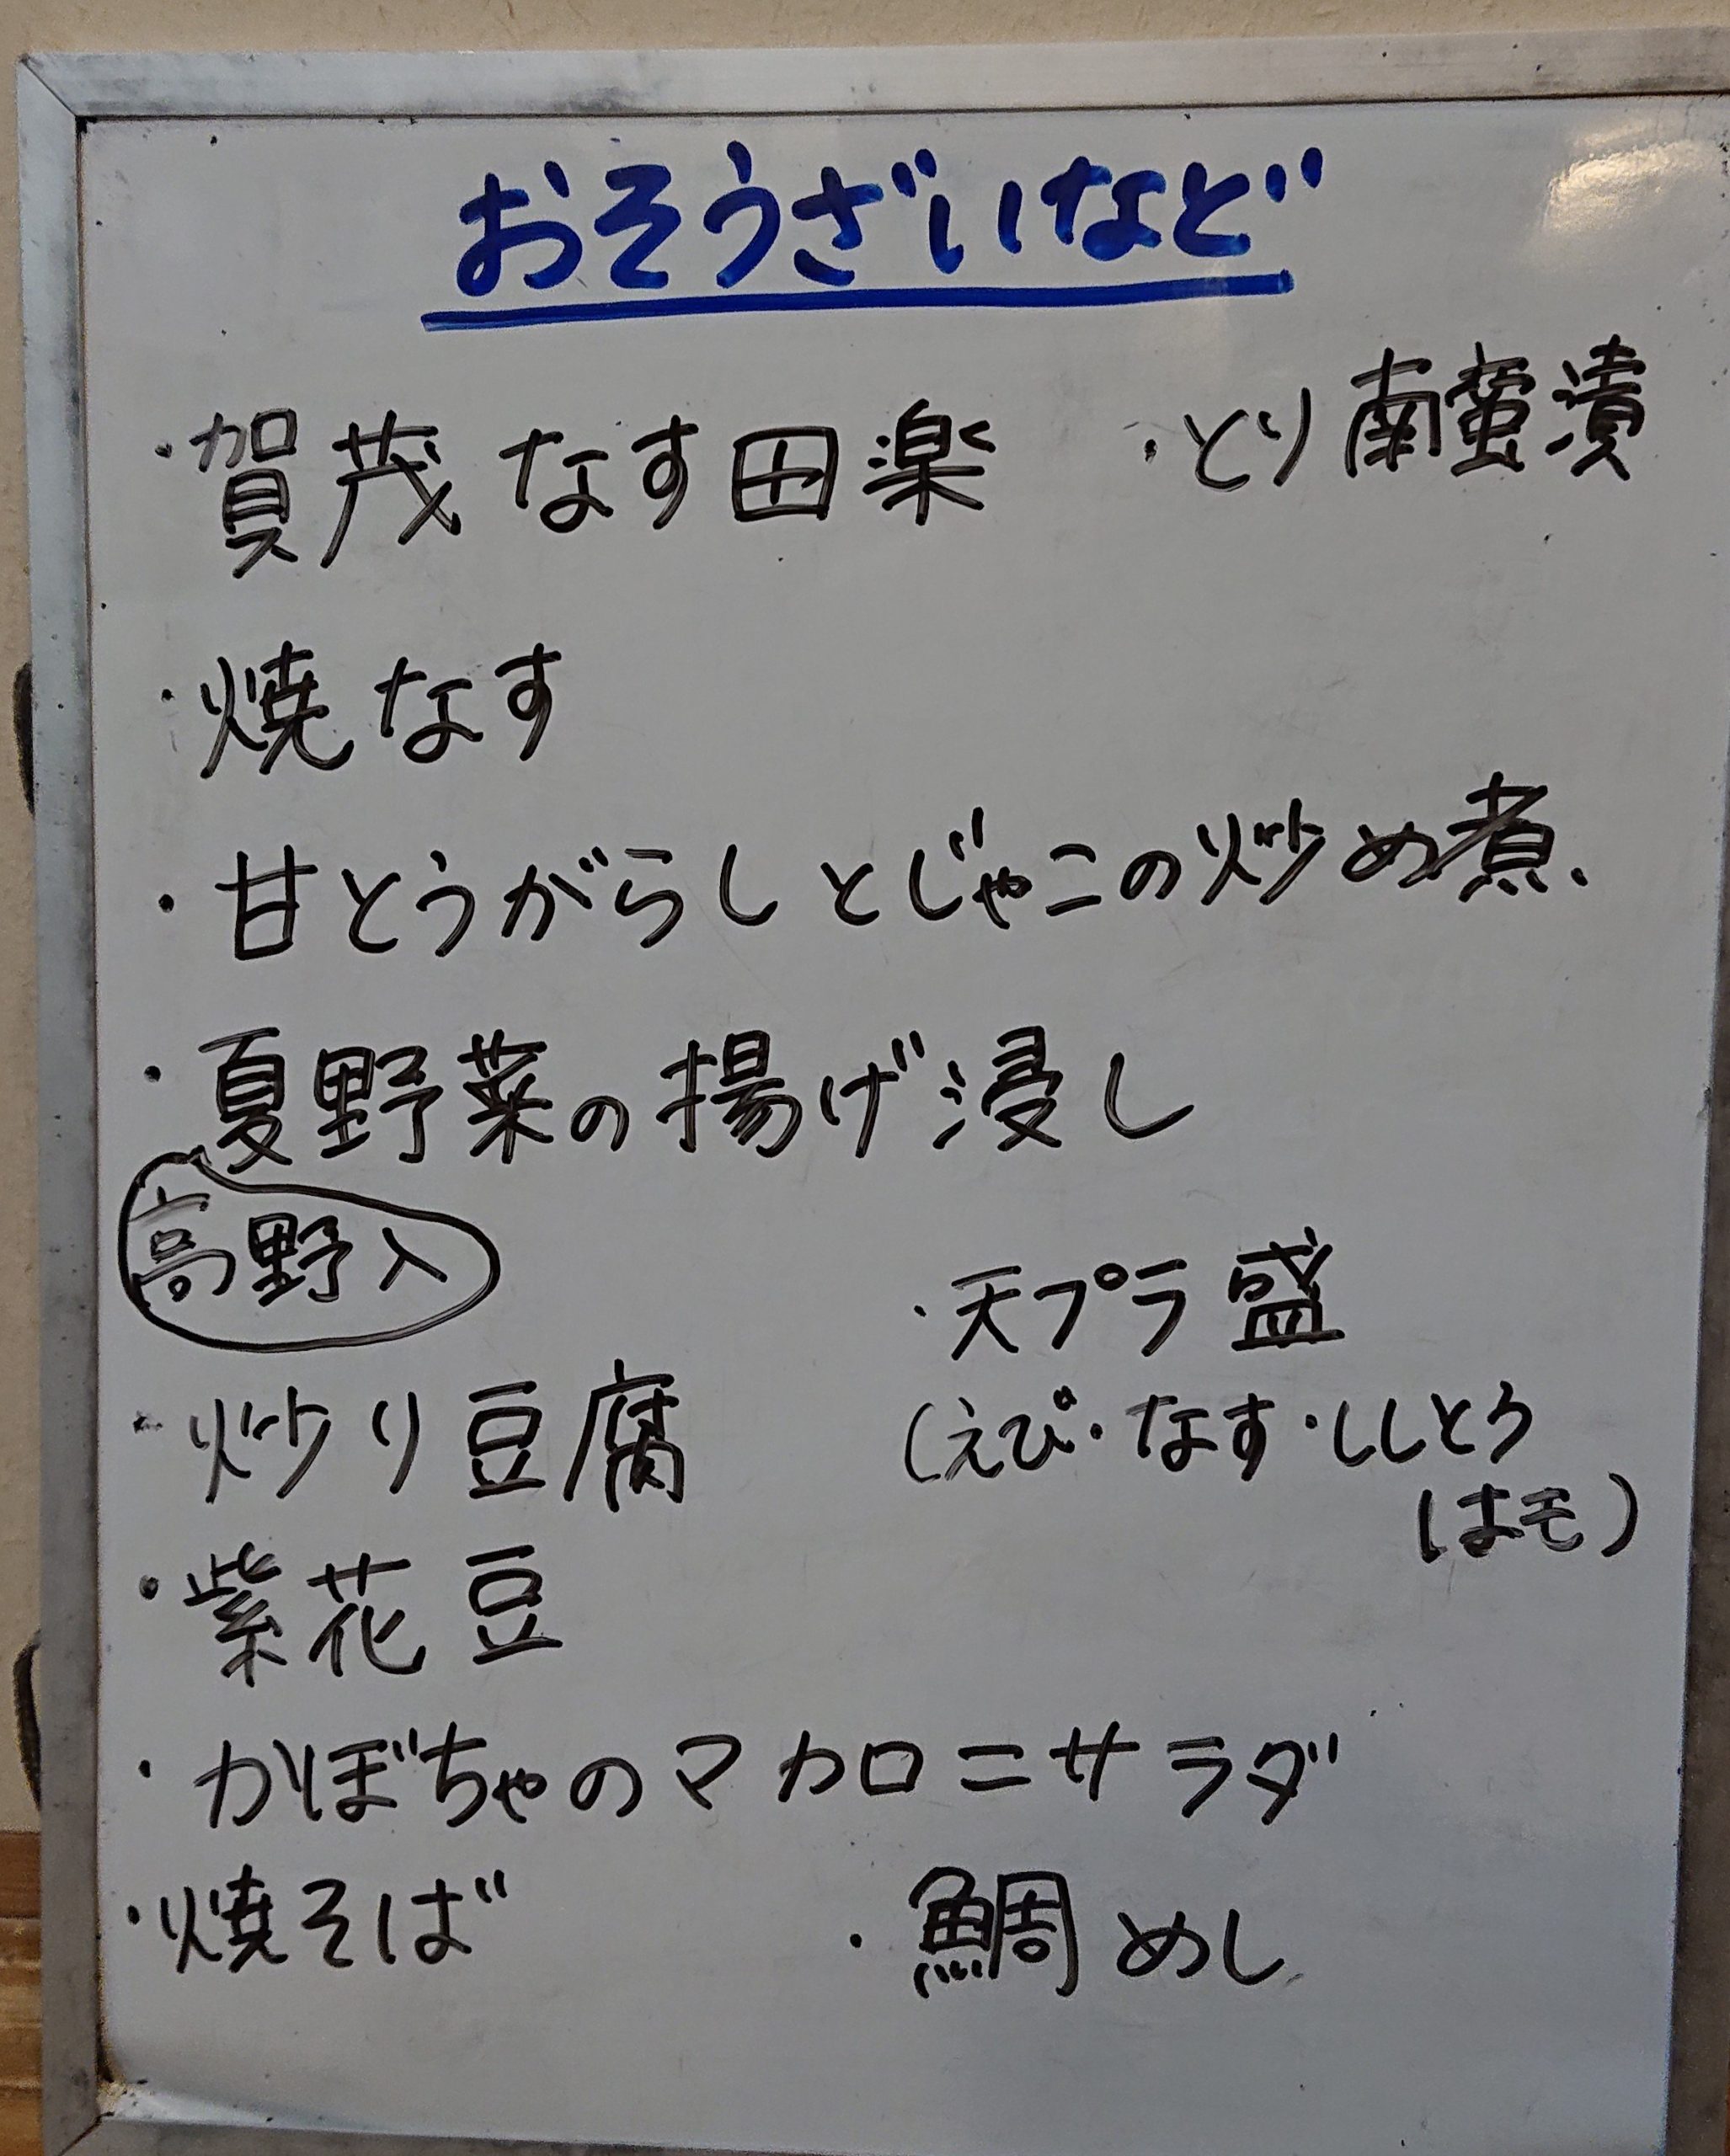 おそうざいなど
・賀茂なす田楽
・とり南蛮漬
・焼なす
・甘とうがらしとじゃこの炒め煮
・夏野菜の揚げ浸し
高野入
・天プラ盛
(えび・なす・ししとう
はモ)
・炒り豆腐
・紫花豆
・かぼちゃのマカロニサラダ
・焼そば
・鯛めし